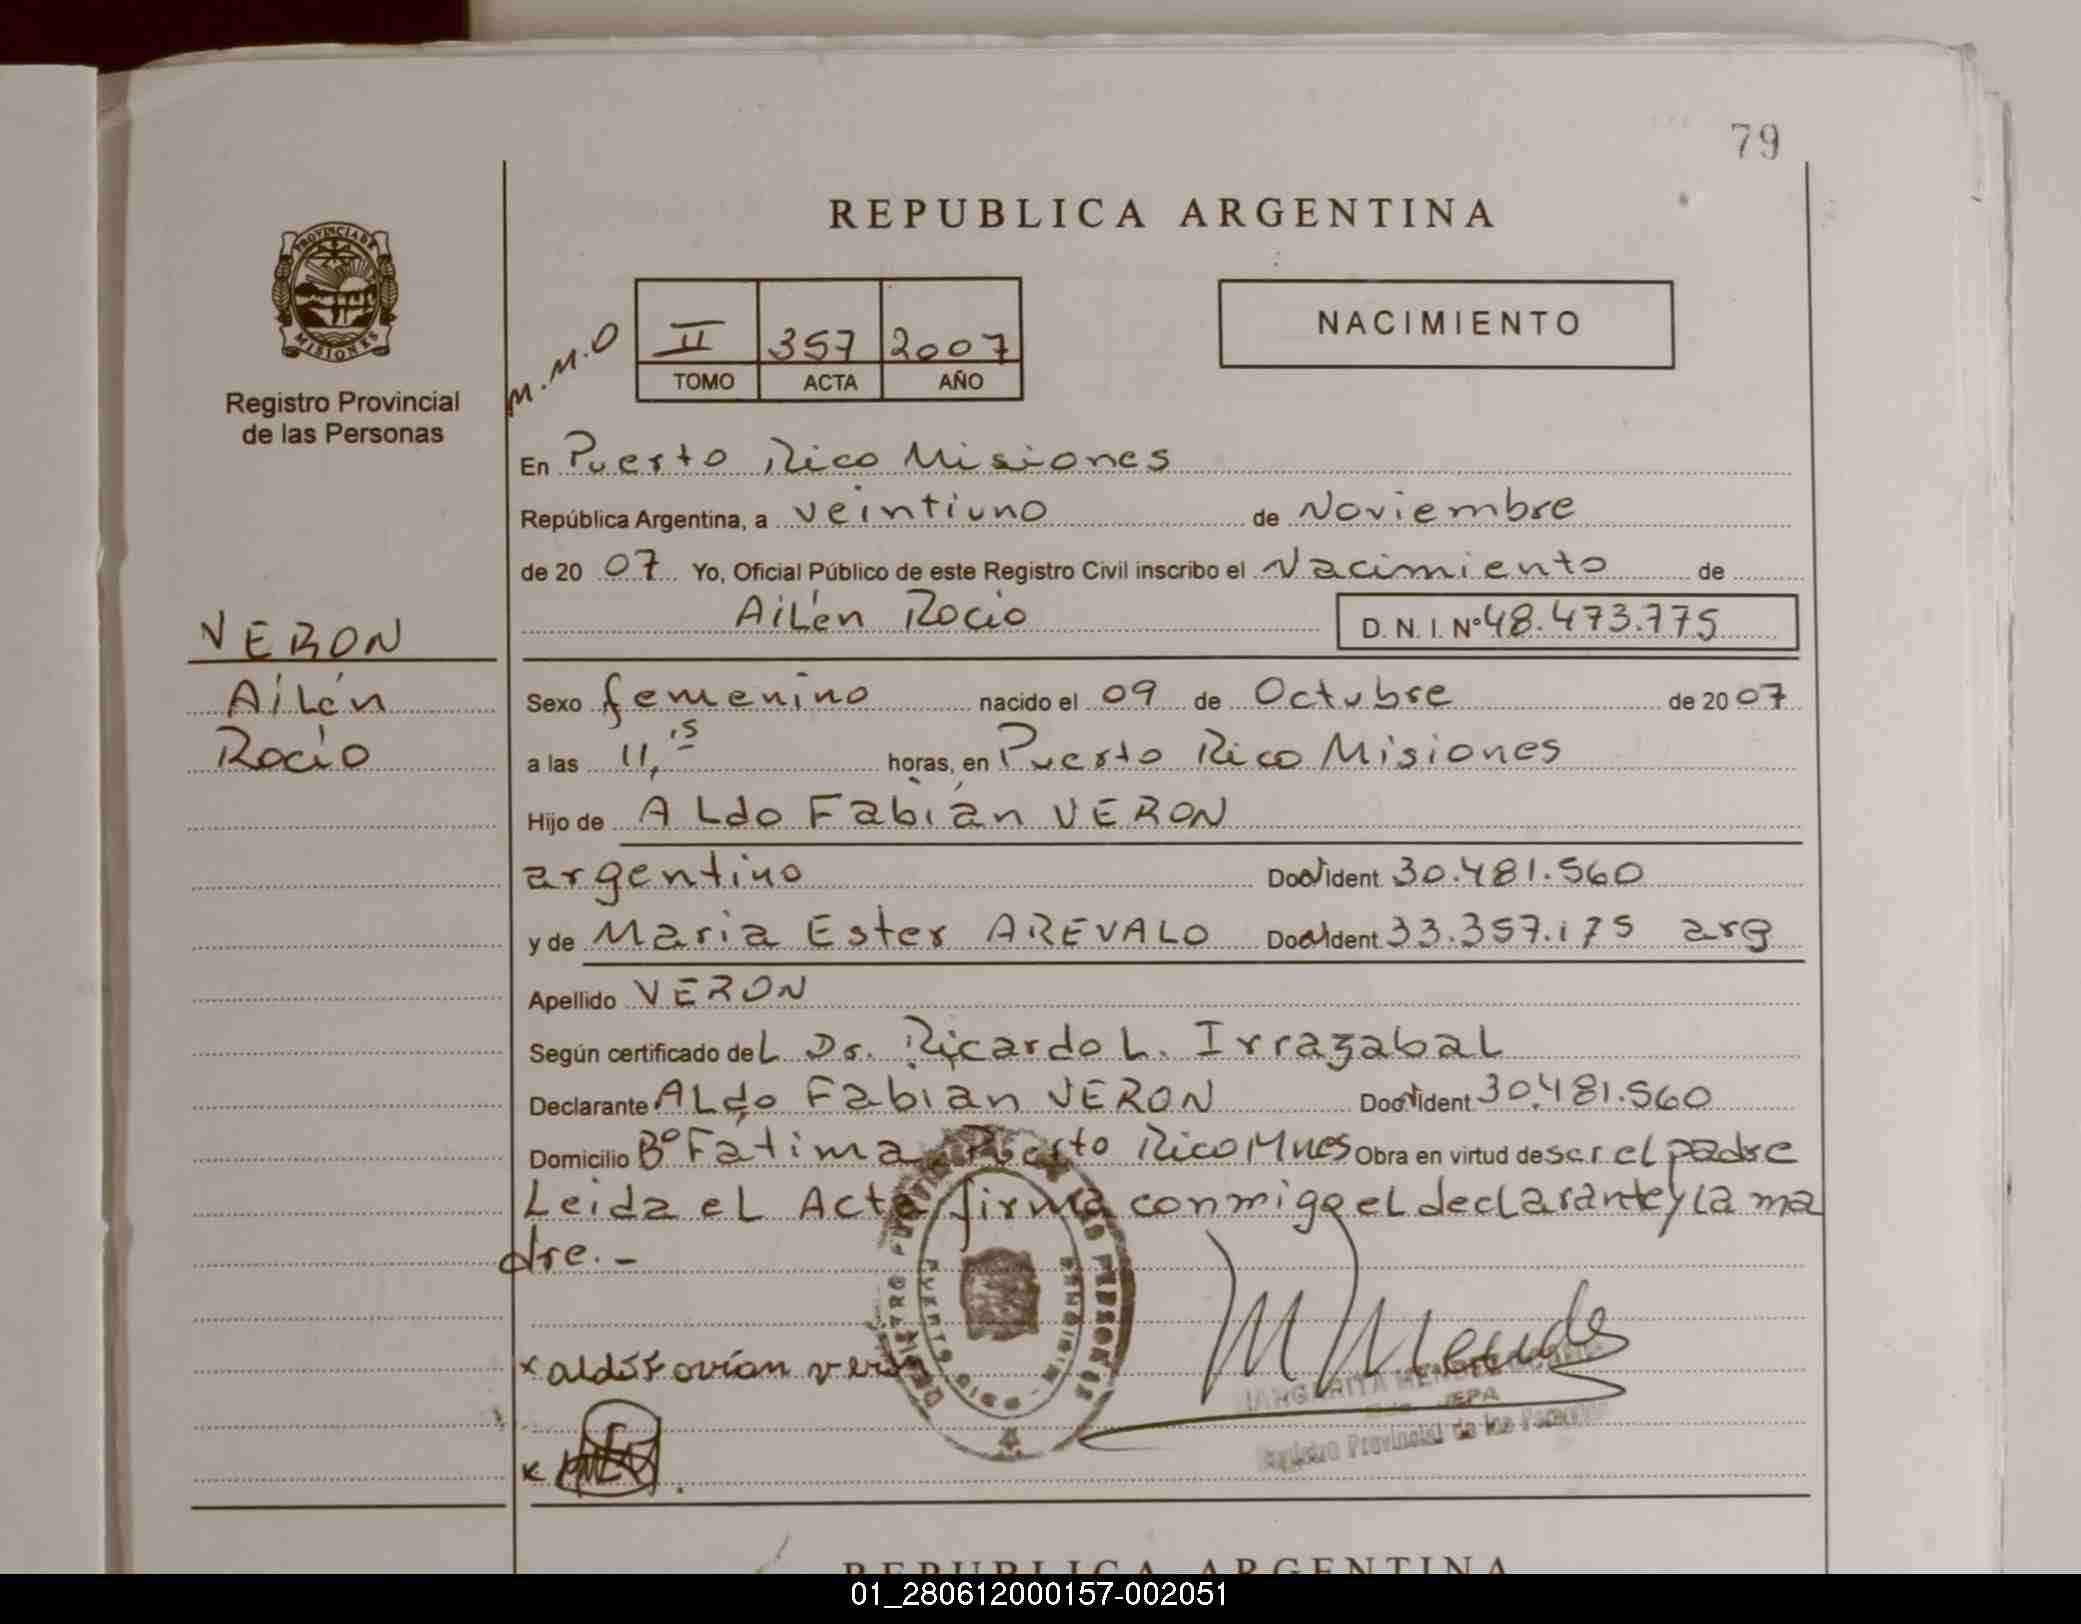 79
REPUBLICA ARGENTINA
PROVINCIA DE
MISIONES
Registro Provincial
de las Personas
M.M.O
II 357 2007
TOMO ACTA AÑO
NACIMIENTO
En Puerto Rico Misiones
República Argentina, a veintiuno de Noviembre
de 20 07 Yo, Oficial Público de este Registro Civil inscribo el Nacimiento de
Ailén Rocío D. N. I. Nº 48.473.775
VERON
Ailén
Rocío
Sexo femenino nacido el 09 de Octubre de 20 07
a las 11,15 horas, en Puerto Rico Misiones
Hijo de Aldo Fabián VERON
argentino Doc. Ident. 30.481.560
y de Maria Ester AREVALO Doc. Ident. 33.357.175 arg
Apellido VERON
Según certificado del Dr. Ricardo L. Irrazabal
Declarante Aldo Fabian VERON Doc. Ident. 30.481.560
Domicilio Bº Fátima Puerto Rico Mnes Obra en virtud de ser el padre
Leida el Acta firma conmigo el declarante y la ma
dre.-
x
x
Registro Provincial de las Personas
REPUBLICA ARGENTINA
01_280612000157-002051